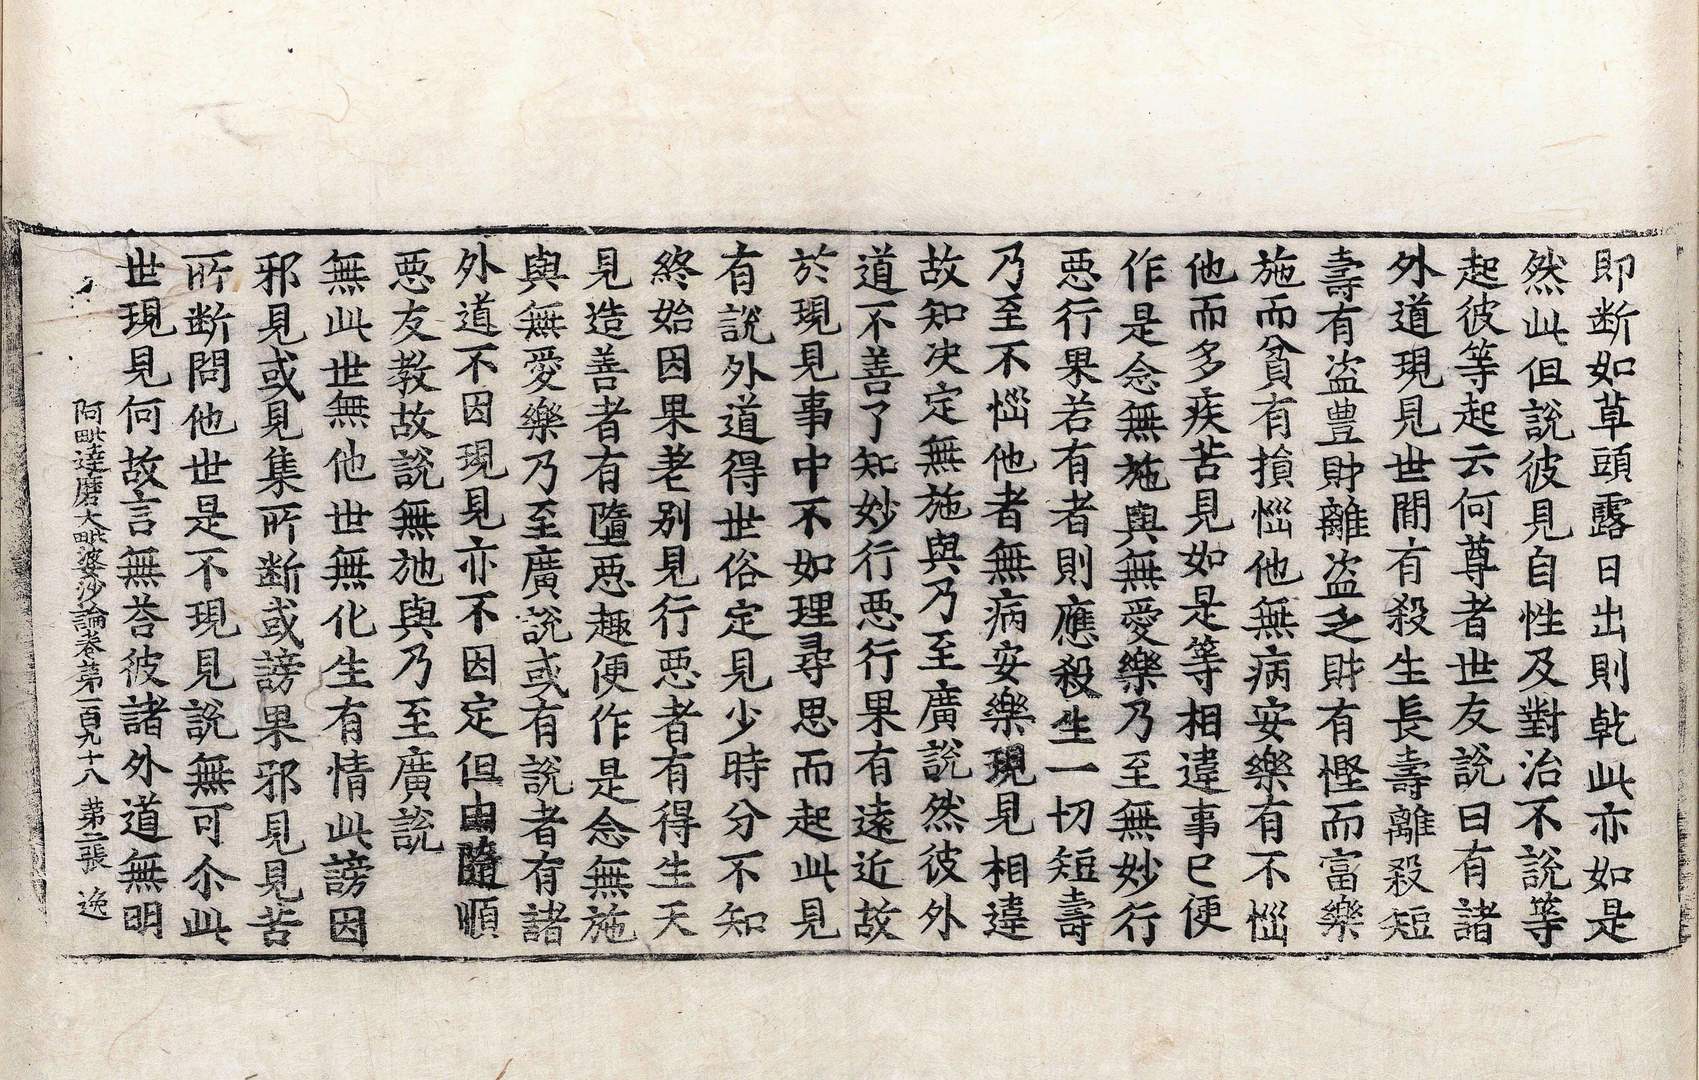 即断如草頭露日出則乾此亦如是
然此但說彼見自性及對治不說等
起彼等起云何尊者世友說曰有諸
外道現見世間有殺生長壽離殺短
壽有盜豊財離盜乏財有慳而富樂
施而貧有損惱他無病安樂有不惱
他而多疾苦見如是等相違事已便
作是念無施與無愛樂乃至無妙行
惡行果若有者則應殺生一切短壽
乃至不惱他者無病安樂現見相違
故知决定無施與乃至廣說然彼外
道不善了知妙行惡行果有遠近故
於現見事中不如理尋思而起此見
有說外道得世俗定見少時分不知
終始因果差別見行惡者有得生天
見造善者有墮惡趣便作是念無施
與無愛樂乃至廣說或有說者有諸
外道不因現見亦不因定但由隨順
惡友教故說無施與乃至廣說
無此世無他世無化生有情此謗因
邪見或見集所断或謗果邪見見苦
所断問他世是不現見說無可尒此
世現見何故言無荅彼諸外道無明
阿毗達磨大毗婆沙論卷第一百九十八 第二張 逸